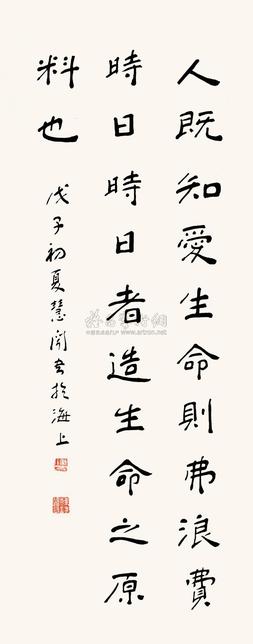 人既知愛生命則弗浪費
時日時日者造生命之原
料也
戊子初夏慧閒書於海上
www.artron.net